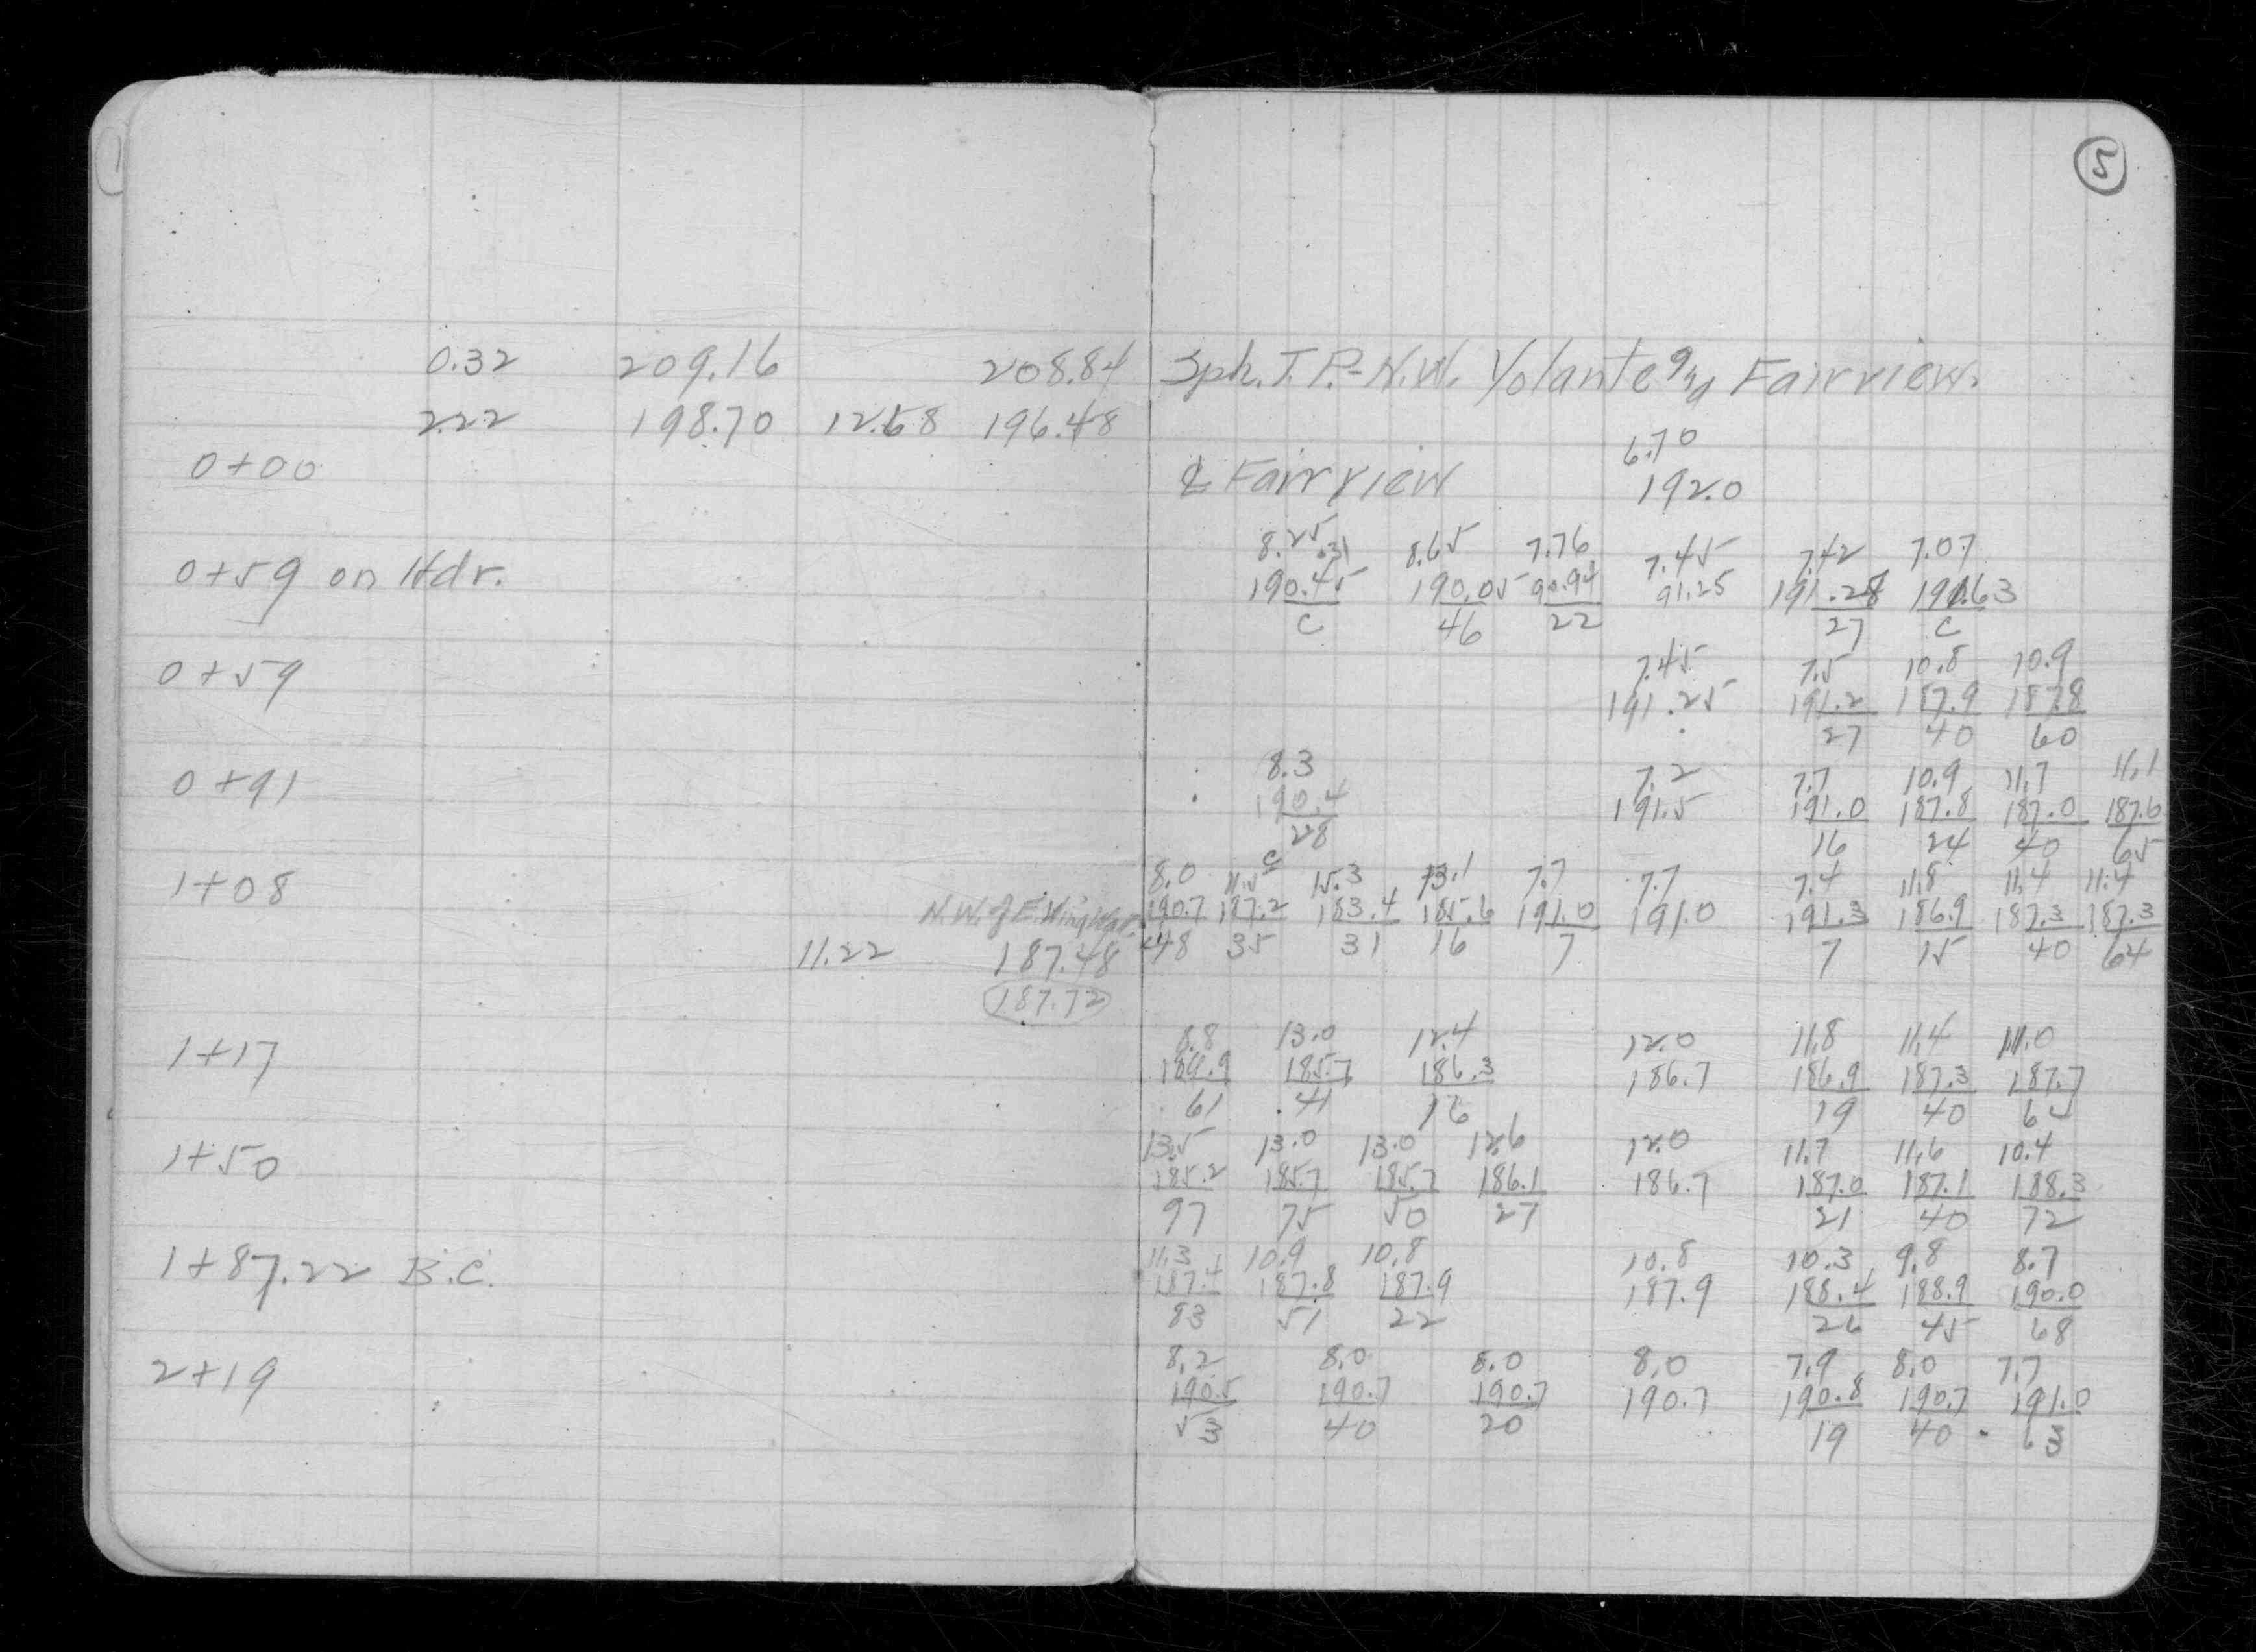 5
0.32 209.16 208.84 Sph. T.P.-N.W. Yolante and Fairview.
2.22 198.70 12.68 196.48
6.70
0+00 ℄ Fairview 192.0
8.25 .31 8.65 7.76 7.45 7.42 7.07
0+59 on Hdr. 190.45 190.05 90.94 91.25 191.28 191.63
C 46 22 27 C
7.45 7.5 10.8 10.9
0+59 191.25 191.2 187.9 187.8
27 40 60
8.3 7.2 7.7 10.9 11.7 11.1
0+91 190.4 191.5 191.0 187.8 187.0 187.6
28 16 24 40 65
C
8.0 11.5 15.3 13.1 7.7 7.7 7.4 11.8 11.4 11.4
1+08 N.W. of E. Wing 190.7 187.2 183.4 185.6 191.0 191.0 191.3 186.9 187.3 187.3
11.22 187.48 48 35 31 16 7 7 15 40 64
187.72
8.8 13.0 12.4 12.0 11.8 11.4 11.0
1+17 189.9 185.7 186.3 186.7 186.9 187.3 187.7
61 41 16 19 40 62
13.5 13.0 13.0 12.6 12.0 11.7 11.6 10.4
1+50 185.2 185.7 185.7 186.1 186.7 187.0 187.1 188.3
97 75 50 27 21 40 72
11.3 10.9 10.8 10.8 10.3 9.8 8.7
1+87.22 B.C. 187.4 187.8 187.9 187.9 188.4 188.9 190.0
83 51 22 26 45 68
8.2 8.0 8.0 8.0 7.9 8.0 7.7
2+19 190.5 190.7 190.7 190.7 190.8 190.7 191.0
53 40 20 19 40 63